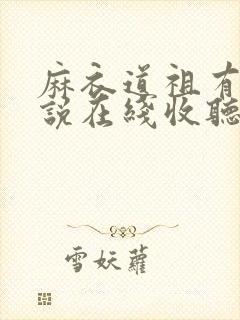 麻衣道祖有
說在綫收聽
雪妖蘿